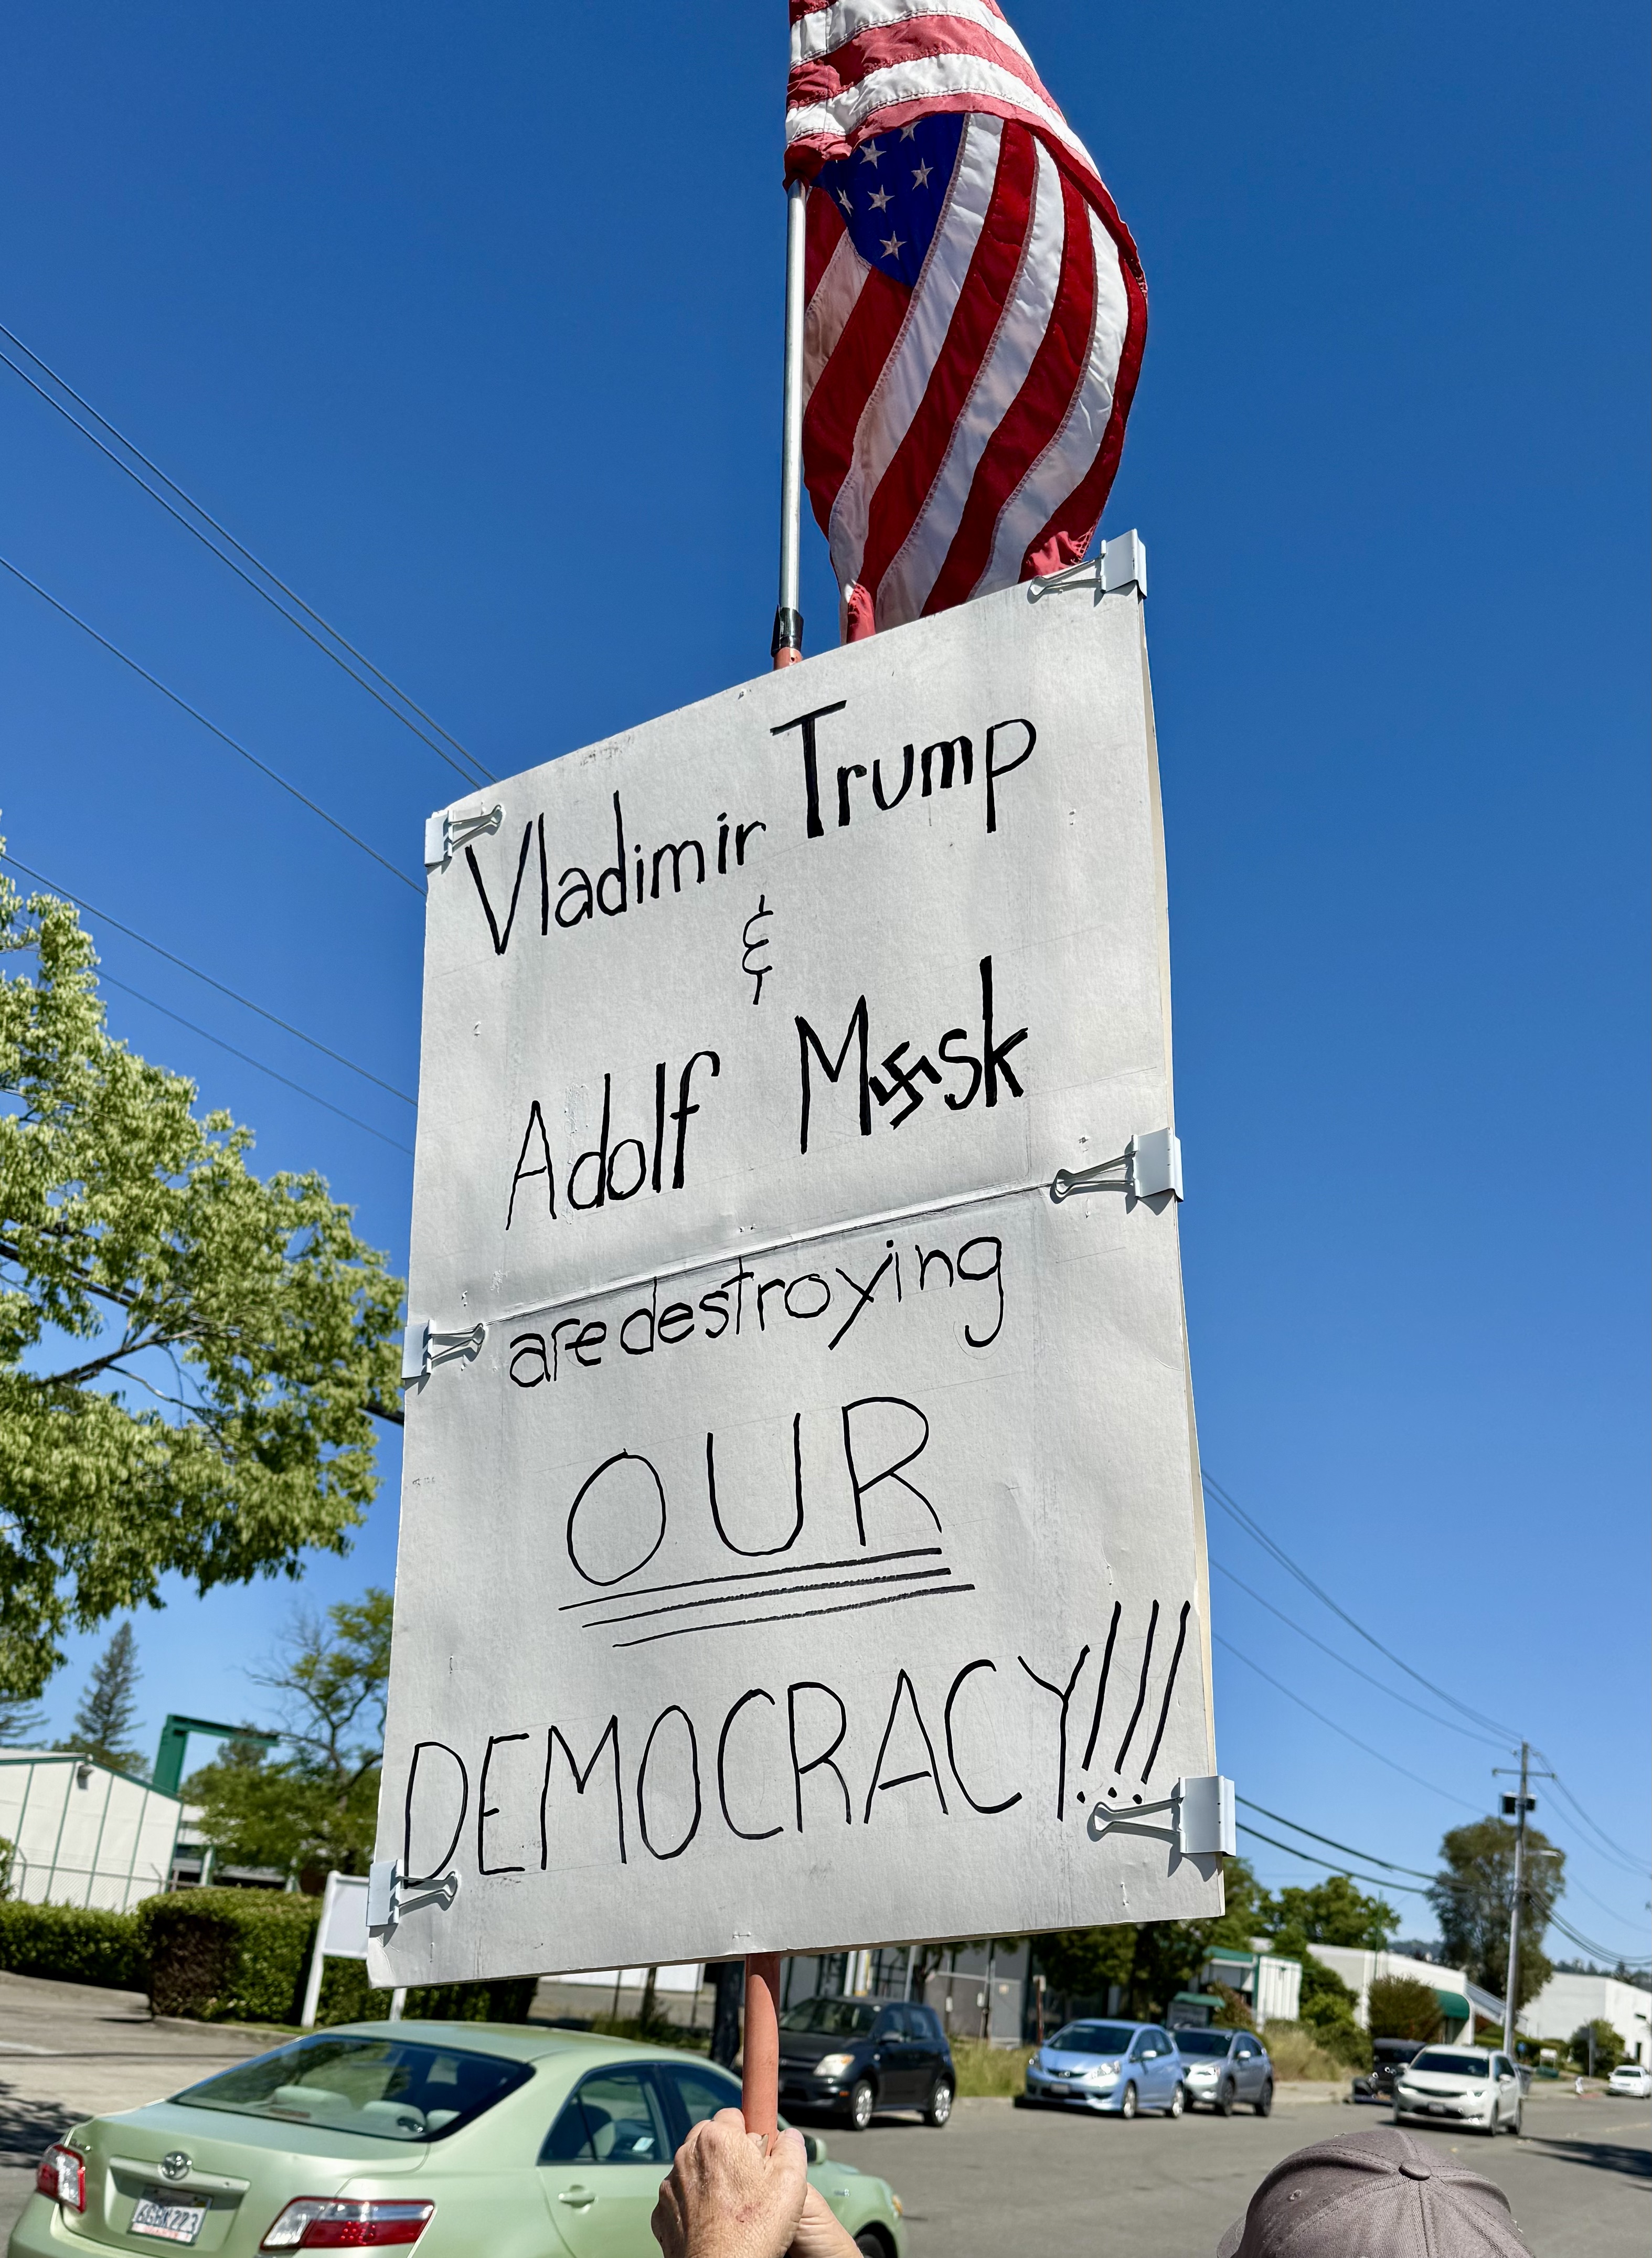 Vladimir Trump
&
Adolf M卐sk
are destroying
OUR
DEMOCRACY!!!